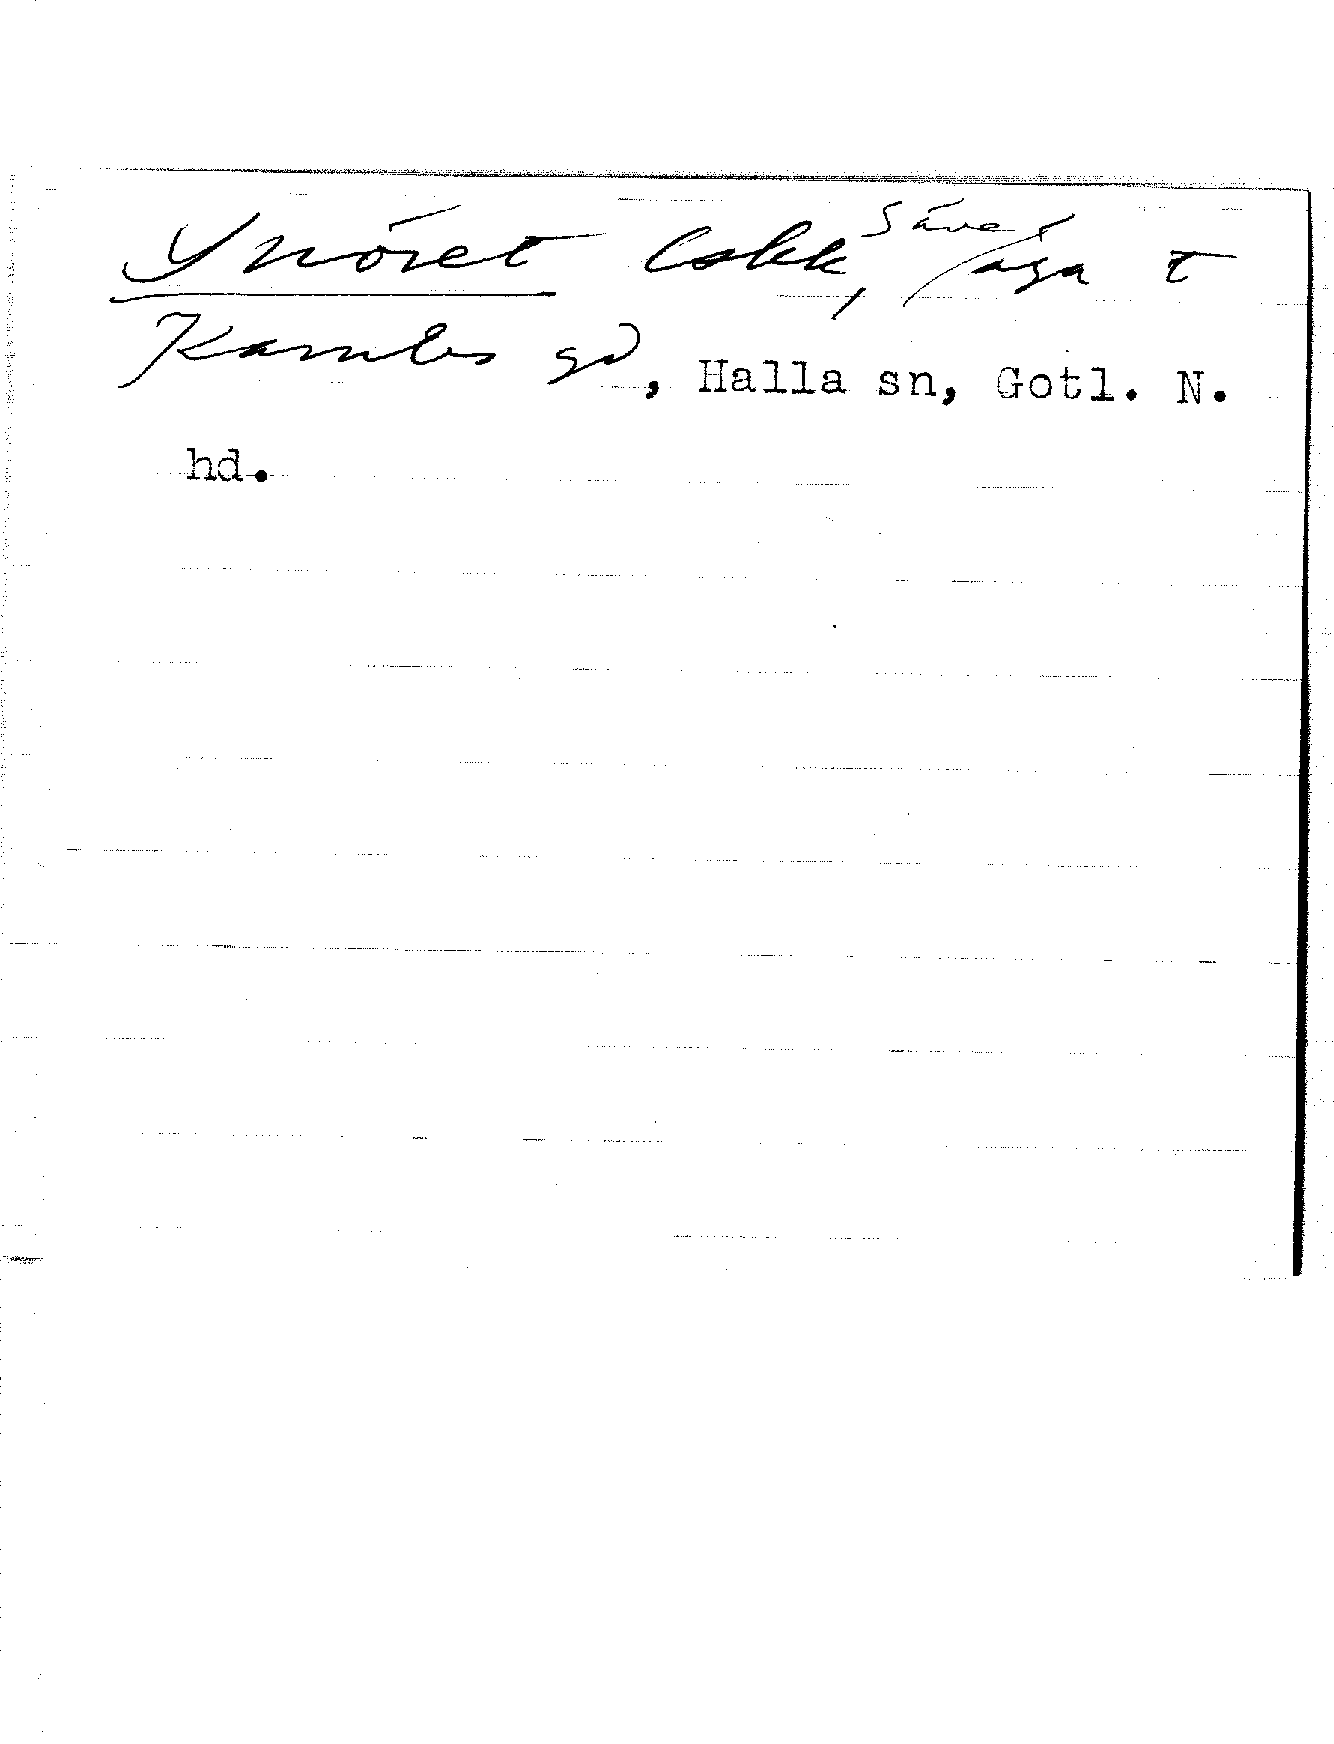 Snöret Lokk, Säve äga t
Kambs gd, Halla sn, Gotl. N.
hd.